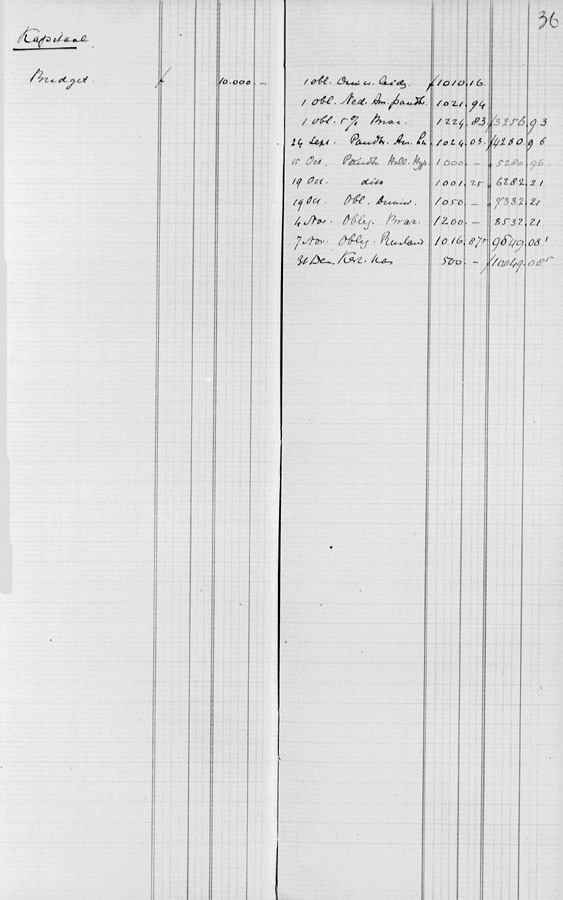 36
Kapitaal
Budget. f 10.000.—
1 obl. Univ. Leid. f 1010.16
1 obl. Ned. Am. pandbr. 1021.94
1 obl. 5% Braz. 1224.83 f 3256.93
24 Sept. Pandbr. 1024.03 f 4280.96
15 Oct. Pandbr. Holl. Hyp. 1000.— 5280.96
19 Oct. dito 1001.25 6282.21
19 Oct. Obl. Univ. 1050.— 7332.21
4 Nov. Oblig. Braz. 1200.— 8532.21
7 Nov. Oblig. Rusland 1016.87⁵ 9549.08⁵
31 Dec. Kas 500.— f 10049.08⁵